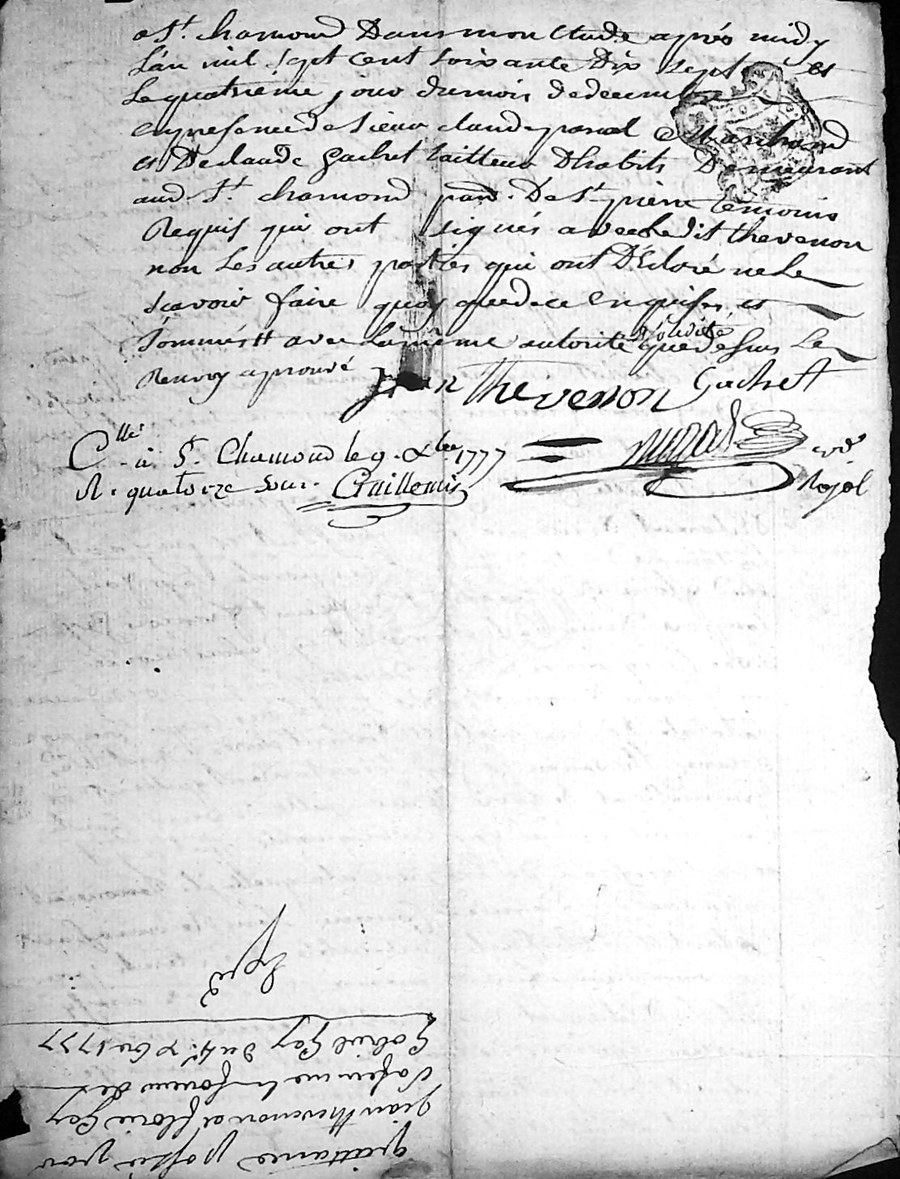 a St. chamond Dans mon Etude après midy
L'an mil sept cent soixante Dix sept et
Le quatrième jour du mois de decembre
en presence de sieur claude pascal Marchand
et De claude Gachet tailleur Dhabits Demeurant
aud St. chamond parr. De St. pierre temoins
Requis qui ont signés avec ledit thevenon
non Les autres parties qui ont Déclaré ne Le
scavoir faire quoy que de ce enquises et
sommés avec la même autorité que dessus Le
Renvoy aprouvé
Jean Thevenon Gachet
Cllé à St. Chamond le 9. Xbre 1777
R. quatorze sous.
quittance passée par
Jean thevenon et florie Gay
sa femme en faveur de
Gabriel Gay du 4e. Xbre 1777
Expié